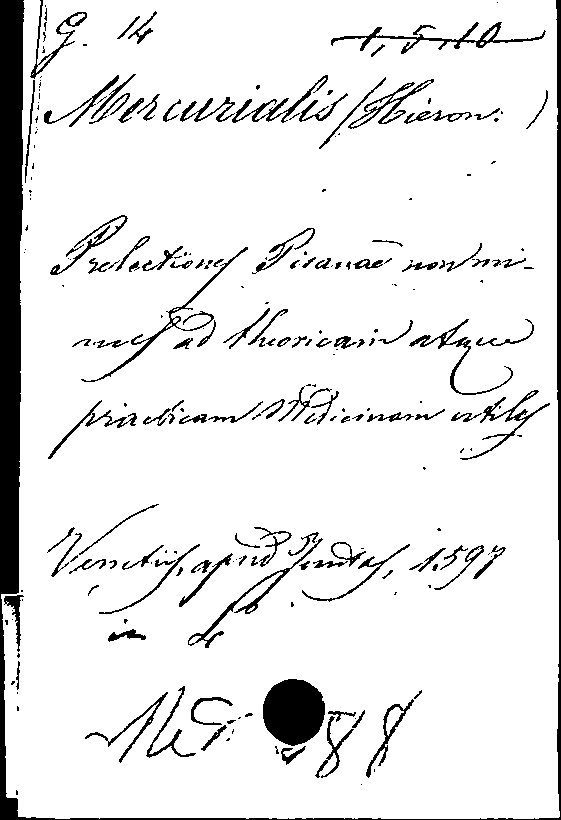 G. 14 1,5,10
Mercurialis (Hieron: )
Prelectiones Pisanae non mi-
nus ad theoricam atque
practicam Medicinam utiles
Venetiis, apud Juntas, 1597
in fo
Med 88